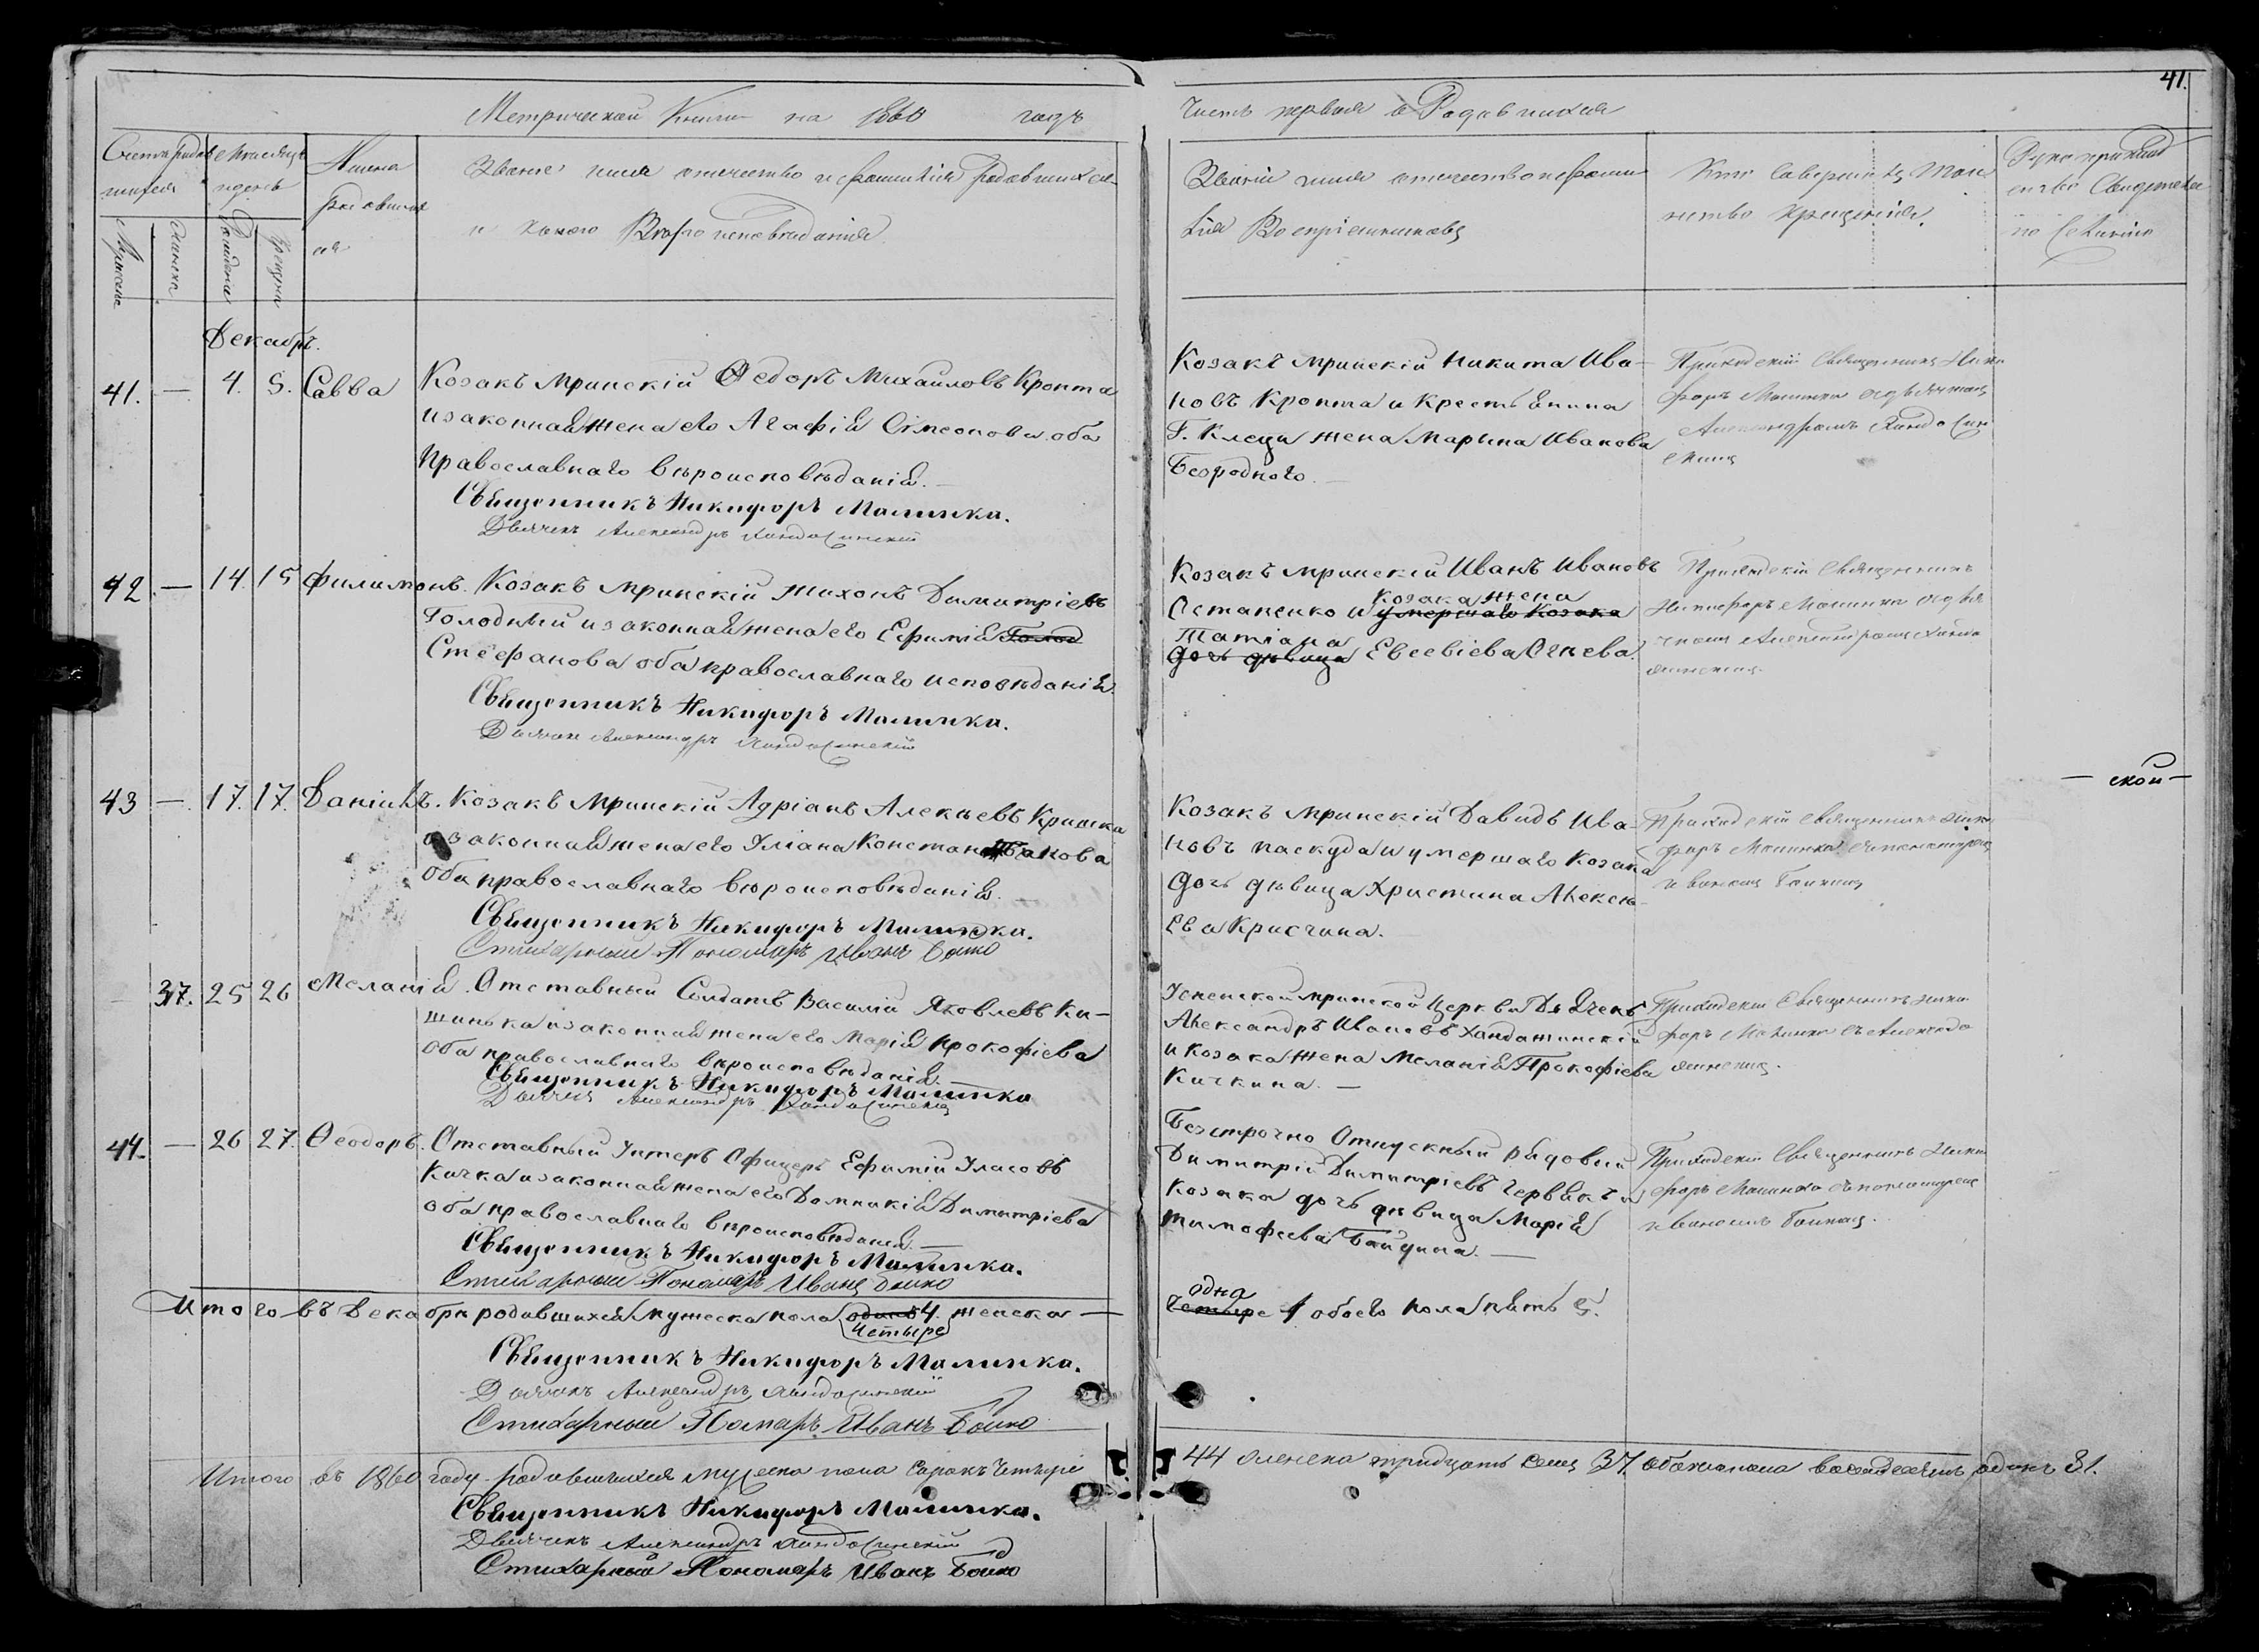 41.
Метрической Книги на 1860 годъ
Часть первая о Родавшихся
Счетъ родив
шихся
Мужеска
Женска
Месяцъ
и день
Рождения
Крещения
Имена
родивших
ся
Звание имя отечество и фамилия родившихся
и какого Вероисповедания.
Званія имя отечество и фами
лія Воспріемниковъ
Кто совершилъ Таи
нство крещенія.
Рукоприклад
ство Свидетелей
по желанию
Декабрь.
41. — 4. 5. Савва
Козакъ Мринскій Ѳедоръ Михайловъ Кропта
и законная жена его Агафія Сімеонова оба
Православнаго вѣроисповѣданія. —
Священникъ Никифоръ Малинка.
Дьячекъ Александръ Хандажинскій
Козакъ Мринскій Никита Ива-
новъ Кропта и Крестьянина
Г. Клеця жена Марина Иванова
Безродного. —
Приходскій Священникъ Ники
форъ Малинка съ дьячкомъ
Александромъ Хандажин
скимъ
42. — 14. 15 Филимонъ.
Козакъ Мринскій Тихонъ Димитріевъ
Голодный и законная жена его Ефимія Голод
Стефанова оба православнаго исповѣданія.
Священникъ Никифоръ Малинка.
Дьячекъ Александръ Хандажинскій
Козакъ Мринскій Иванъ Ивановъ
козака жена
Остапенко и умершаго Козака
Татіана
дочь дѣвица Евсевіева Огнева.
Приходскій Священникъ
Никифоръ Малинка съ дья
чкомъ Александромъ Ханда
жинскимъ.
— ской —
43 — 17. 17. Даніилъ.
Козакъ Мринскій Адріанъ Алексѣевъ Кришка
и законная жена его Уліана Константинова
оба православнаго вѣроисповѣданія. —
Священникъ Никифоръ Малинка.
Стихарный Пономаръ Иванъ Бойко
Козакъ Мринскій Давидъ Ива-
новъ Паскуда и умершаго Козака
дочь дѣвица Христина Алексѣ-
ева Крисчина.
Приходскій Священникъ Ники
форъ Малинка съ пономаремъ
Иваномъ Бойкомъ
37. 25 26 Меланія.
Отставный Солдатъ Василій Яковлевъ Ки-
шинька и законная жена его Марія Прокофіева
оба православнаго вѣроисповѣданія. —
Священникъ Никифоръ Малинка
Дьячекъ Александръ Хандажинскій
Успенской Мринской Церкви Дьячекъ
Александръ Ивановъ Хандажинскій
и козака жена Меланія Прокофіева
Кичкина. —
Приходскій Священникъ Ники
форъ Малинка съ
жинскимъ.
44. — 26 27. Ѳеодоръ.
Отставный Унтеръ Офицеръ Ефимій Уласовъ
Кичка и законная жена его Домникія Димитріева
оба православнаго вѣроисповѣданія. —
Священникъ Никифоръ Малинка.
Стихарный Пономаръ Иванъ Бойко
Безсрочно Отпускный Рядовый
Димитрій Димитріевъ Червякъ и
Козака дочь дѣвица Марія
Тимофеева Байдина. —
Приходскій Священникъ Ники
форъ Малинка съ пономаремъ
Иваномъ Бойкомъ.
Итого въ Декабрѣ родившихся мужеска пола одинъ 4. женска —
четыре
одна
четыре 1 обоего пола пять 5.
Священникъ Никифоръ Малинка.
Дьячекъ Александръ Хандажинскій
Стихарный Помаръ Иванъ Бойко
Итого въ 1860 году родившихся мужеска пола сорокъ четыре
44 женска тридцать семь 37. обоего пола восемдесятъ одинъ 81.
Священникъ Никифоръ Малинка.
Дьячекъ Александръ Хандажинскій
Стихарный Пономаръ Иванъ Бойко